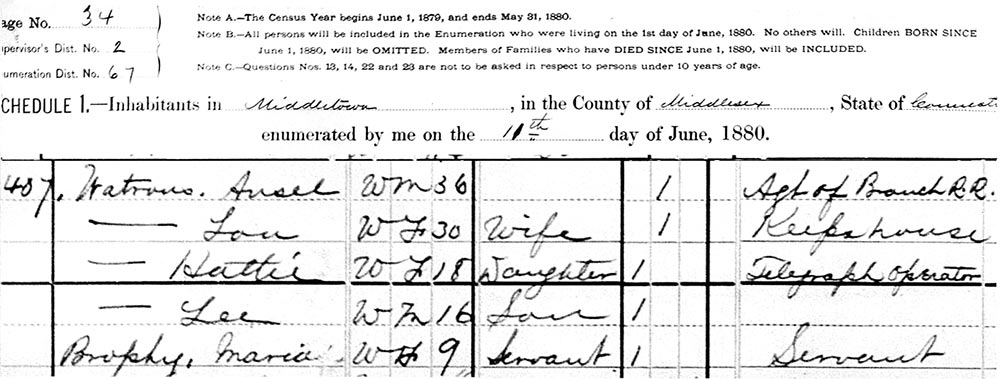 age No. 34
upervisor's Dist. No. 2
numeration Dist. No. 67
Note A.—The Census Year begins June 1, 1879, and ends May 31, 1880.
Note B.—All persons will be included in the Enumeration who were living on the 1st day of June, 1880. No others will. Children BORN SINCE
June 1, 1880, will be OMITTED. Members of Families who have DIED SINCE June 1, 1880, will be INCLUDED.
Note C.—Questions Nos. 13, 14, 22 and 23 are not to be asked in respect to persons under 10 years of age.
CHEDULE 1.—Inhabitants in Middletown, in the County of Middlesex, State of Connect
enumerated by me on the 11th day of June, 1880.
407. Watrous. Ansel W M 36 1 Agt of Branch R.R.
— Lou W F 30 Wife 1 Keeps house
— Hattie W F 18 Daughter 1 Telegraph Operator
— Lee W M 16 Son 1
Brophy, Maria W F 9 Servant 1 Servant